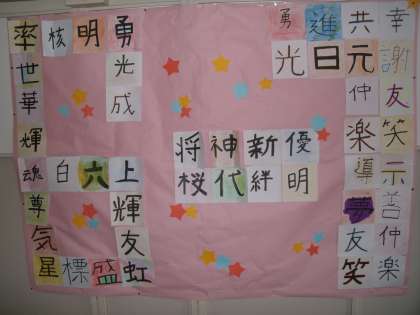 率核明勇
世光
華成
輝
魂白六上
尊輝
気友
星標盛虹
将神新優
桜代絆明
勇進共幸
光日元謝
仲友
楽笑
導示
善
友仲
笑楽